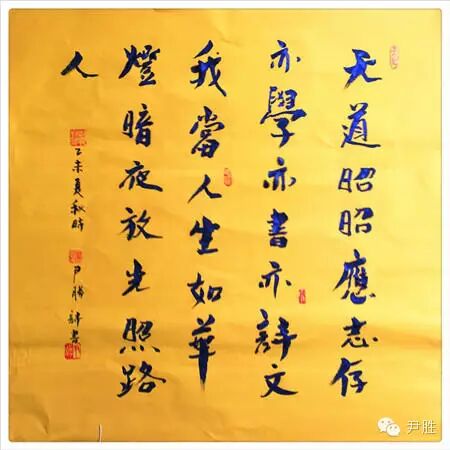 天道昭昭應志存
亦學亦書亦詩文
我當人生如華
燈暗夜放光照路
人
乙未夏秋時 尹勝詩書
尹胜